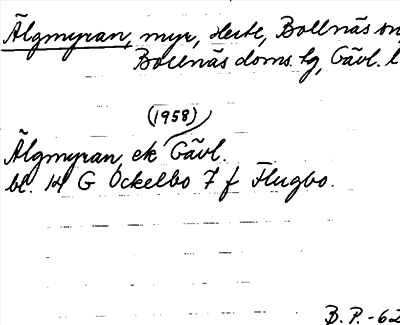 Älgmyran, myr, Heste, Bollnäs sn,
Bollnäs doms. hg, Gävl. l
(1958)
Älgmyran, ek Gävl.
bl. 14 G Ockelbo 7 f Flugbo.
B. P. - 62